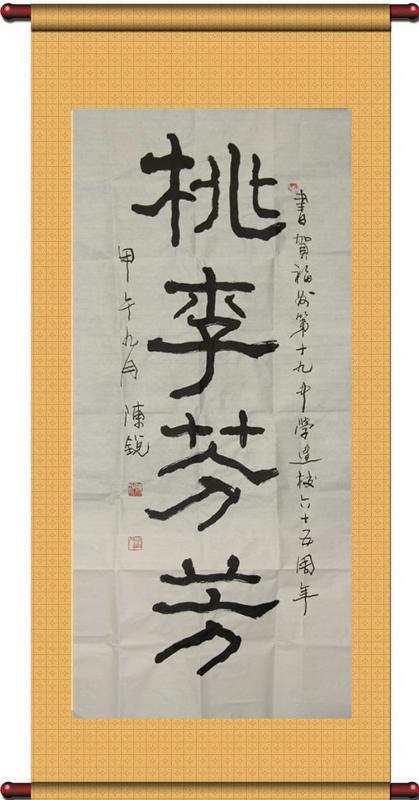 書賀福州第十九中學建校六十五周年
桃李芬芳
甲午九月 陳銳